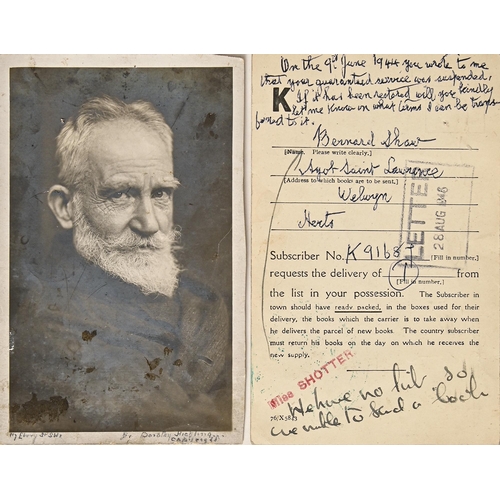 by Dorothy Hickling
Copyright
On the 9th June 1944 you wrote to me
that your guaranteed service was suspended.
K If it has been restored will you kindly
let me know on what terms I can be trans-
ferred to it.
Bernard Shaw
[Name. Please write clearly.]
Ayot Saint Lawrence
[Address to which books are to be sent.]
Welwyn
Herts
LETTE
28 AUG 1946
Subscriber No. K 9168
[Fill in number.]
requests the delivery of from
[Fill in number.]
the list in your possession. The Subscriber in
town should have ready packed, in the boxes used for their
delivery, the books which the carrier is to take away when
he delivers the parcel of new books. The country subscriber
must return his books on the day on which he receives the
new supply.
Miss SHOTTER
We have no sub so
are unable to send a book